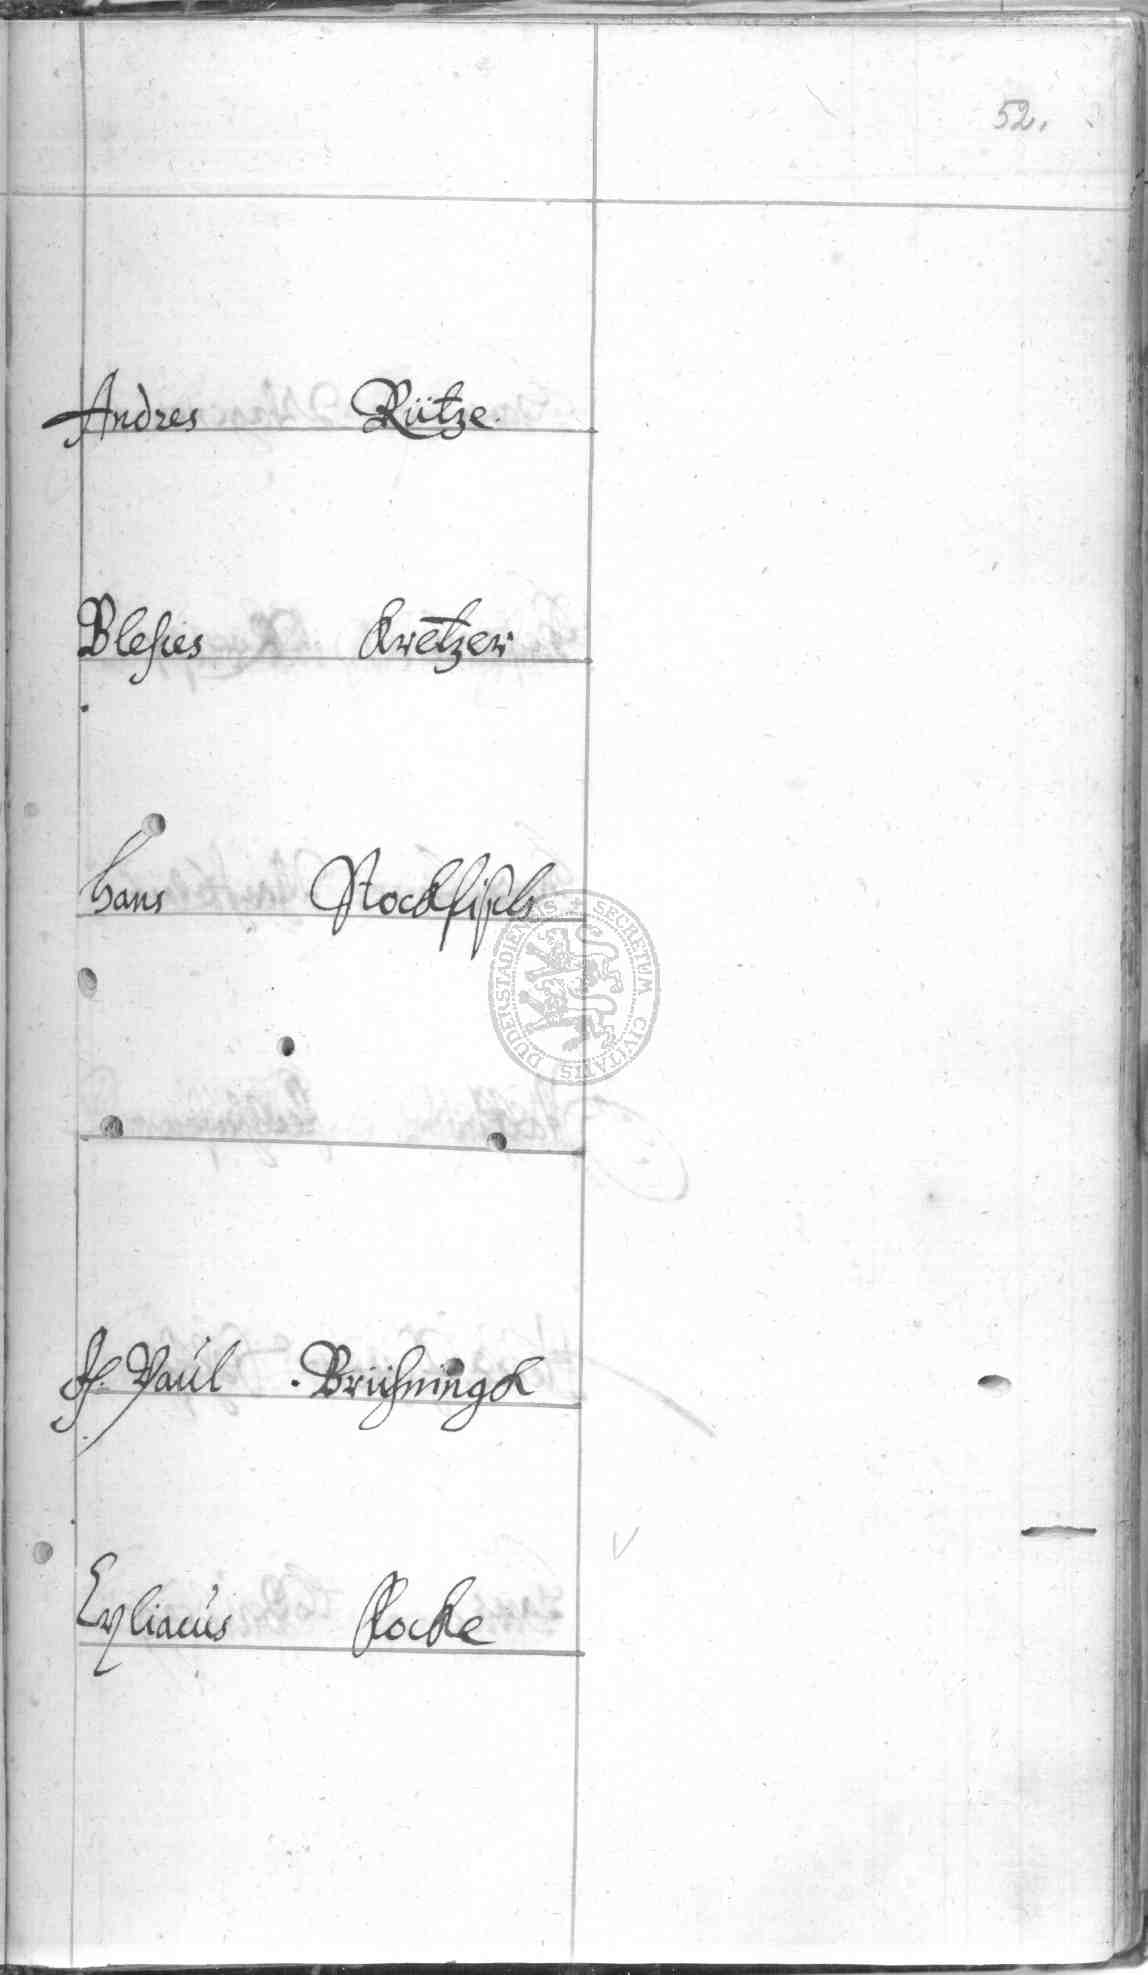 52.
Andres Rütze.
Blesies Kretzer
Hans Stockfisch
SECRETUM CIVITATIS DUDERSTADIENSIS
H. Paul Brüsningck
Cyliacus Kocke